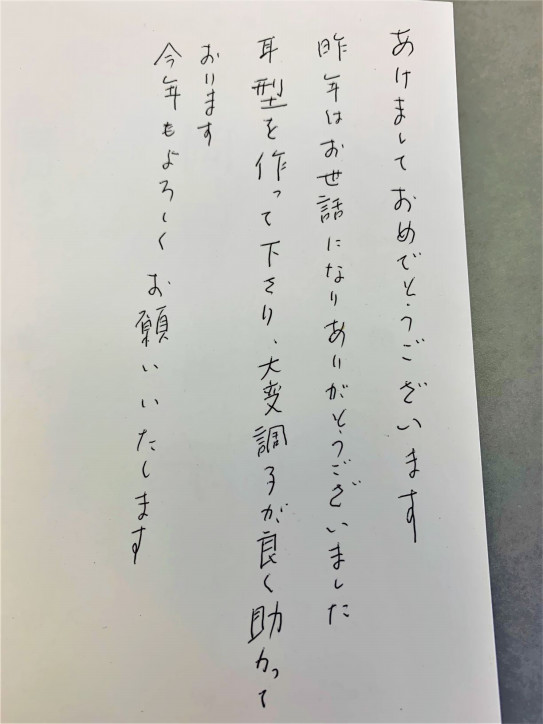 あけましておめでとうございます
昨年はお世話になりありがとうございました
耳型を作って下さり、大変調子が良く助かって
おります
今年もよろしくお願いいたします